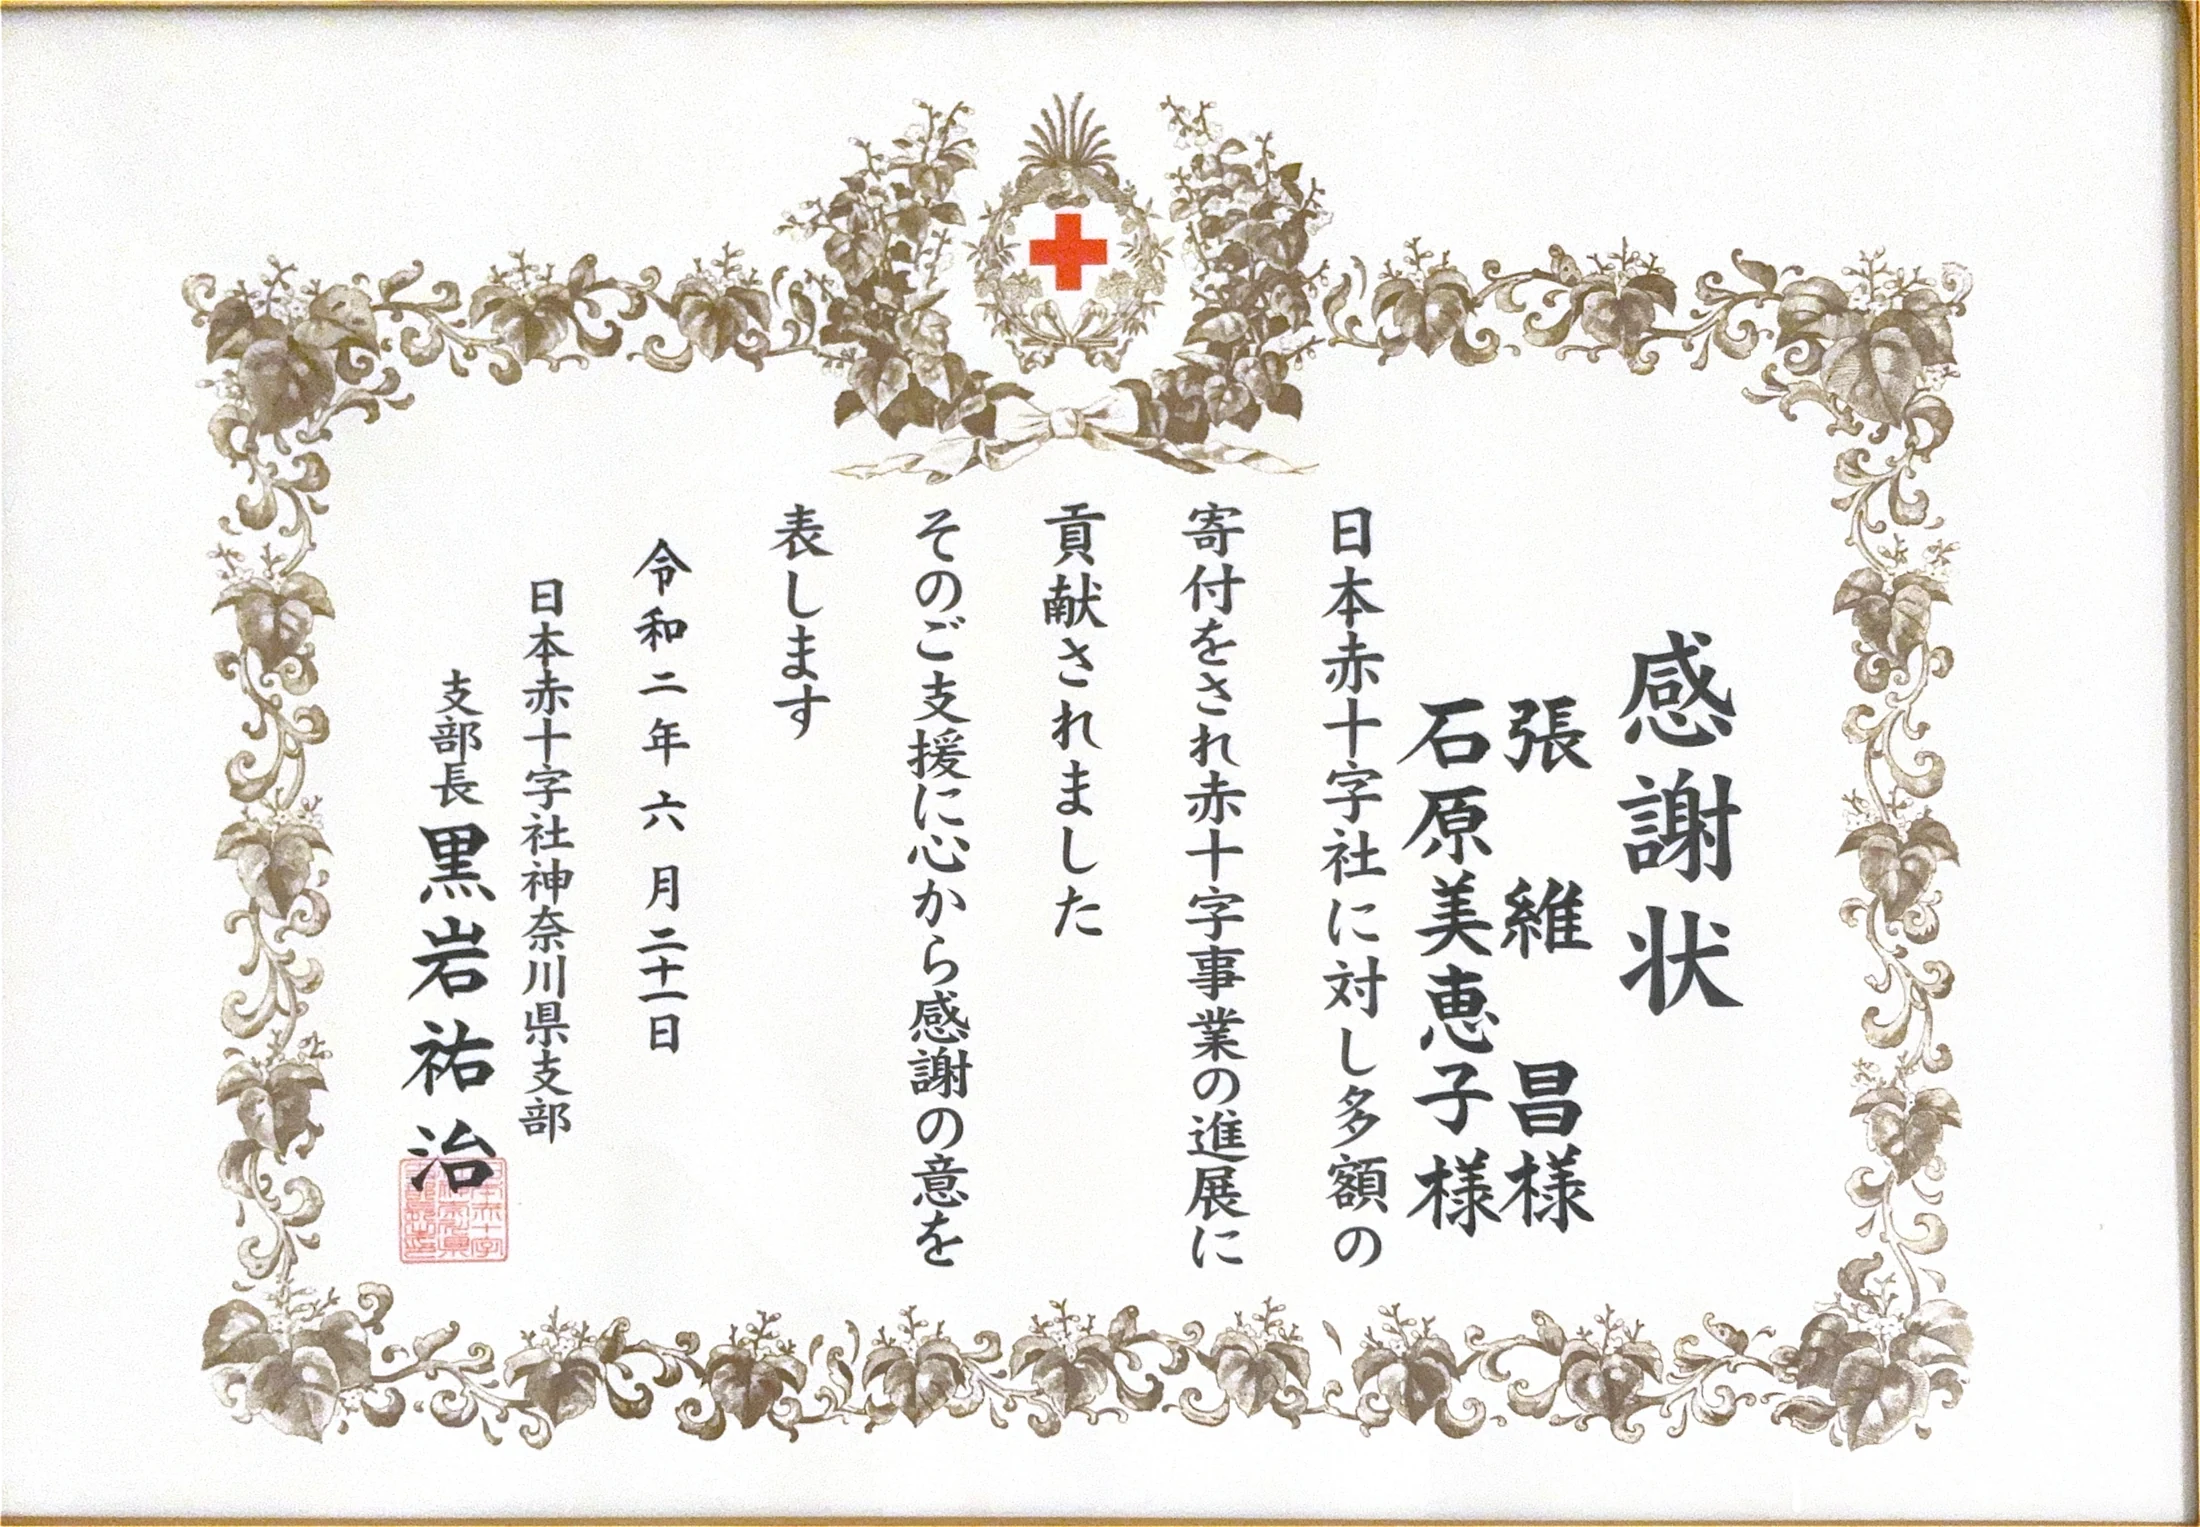 感謝状
張維昌様
石原美恵子様
日本赤十字社に対し多額の
寄付をされ赤十字事業の進展に
貢献されました
そのご支援に心から感謝の意を
表します
令和二年六月二十一日
日本赤十字社神奈川県支部
支部長 黒岩祐治